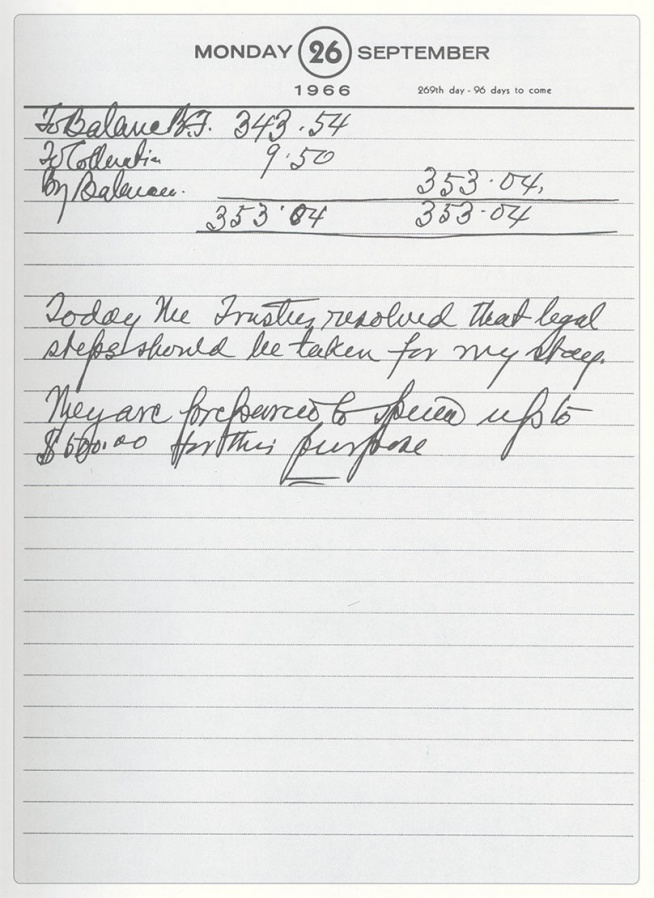 MONDAY 26 SEPTEMBER
1966 269th day - 96 days to come
To Balance B.F. 343.54
To Collection 9.50
By Balance. 353.04.
353.04 353.04
Today the Trustees resolved that legal
steps should be taken for my stay.
They are prepared to spend up to
for this purpose